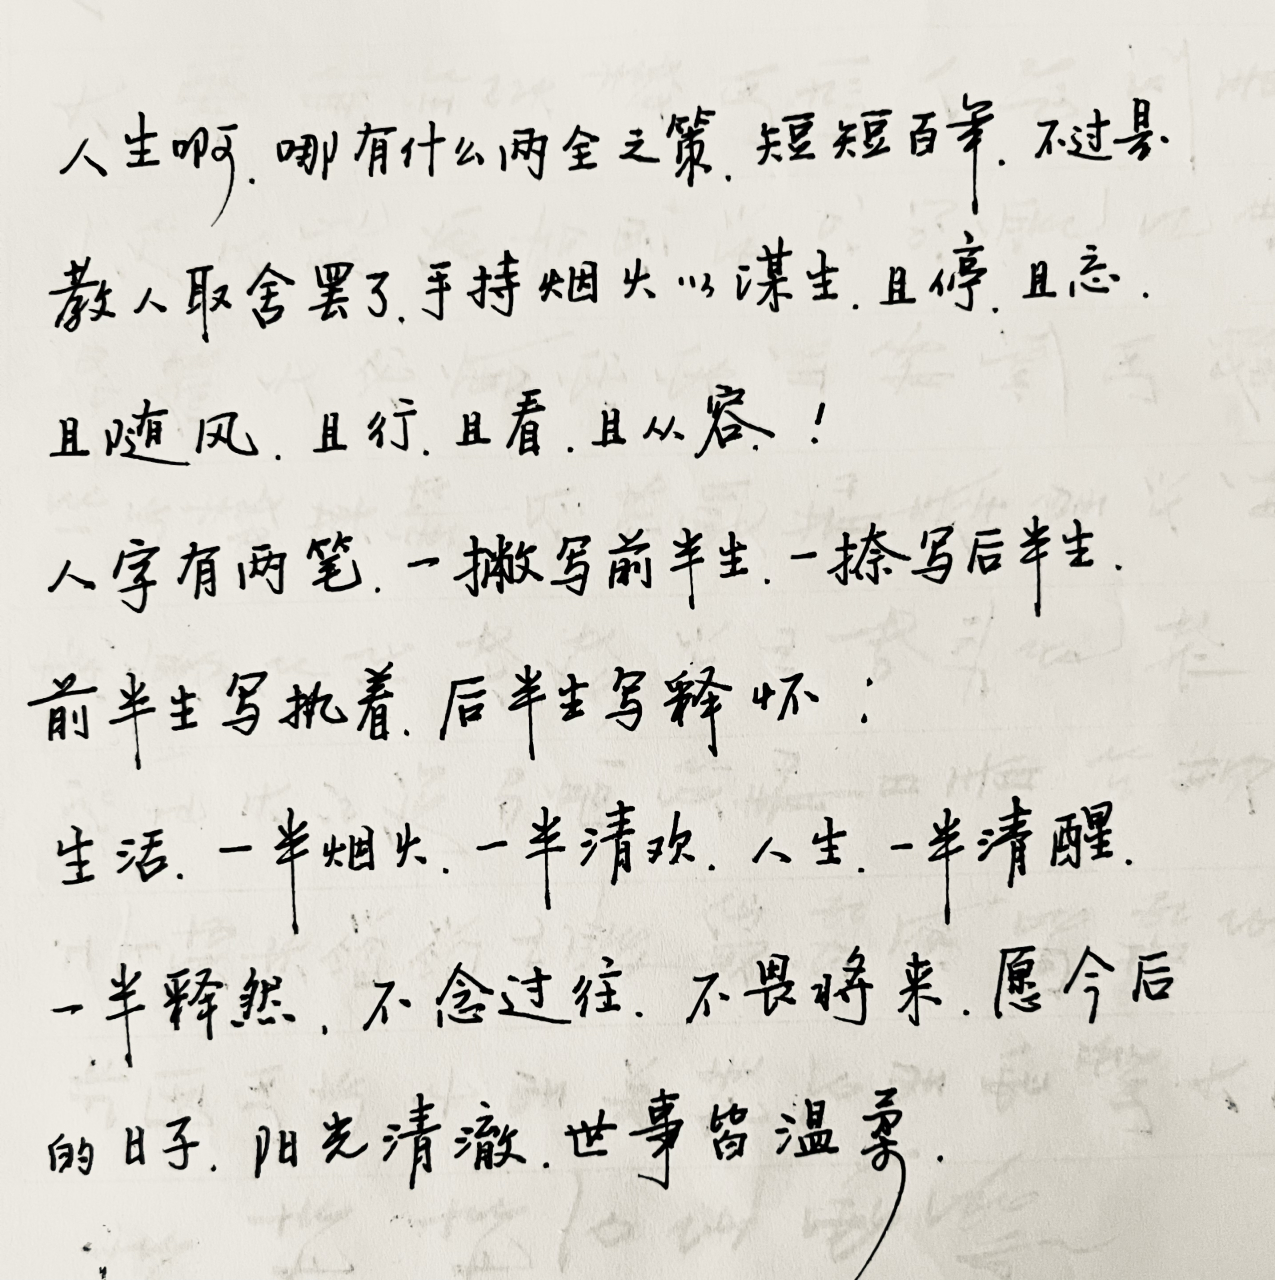 人生啊.哪有什么两全之策.短短百年.不过是
教人取舍罢了.手持烟火以谋生.且停.且忘.
且随风.且行.且看.且从容.!
人字有两笔.一撇写前半生.一捺写后半生.
前半生写执着.后半生写释怀:
生活.一半烟火.一半清欢.人生.一半清醒.
一半释然.不念过往.不畏将来.愿今后
的日子.阳光清澈.世事皆温柔.